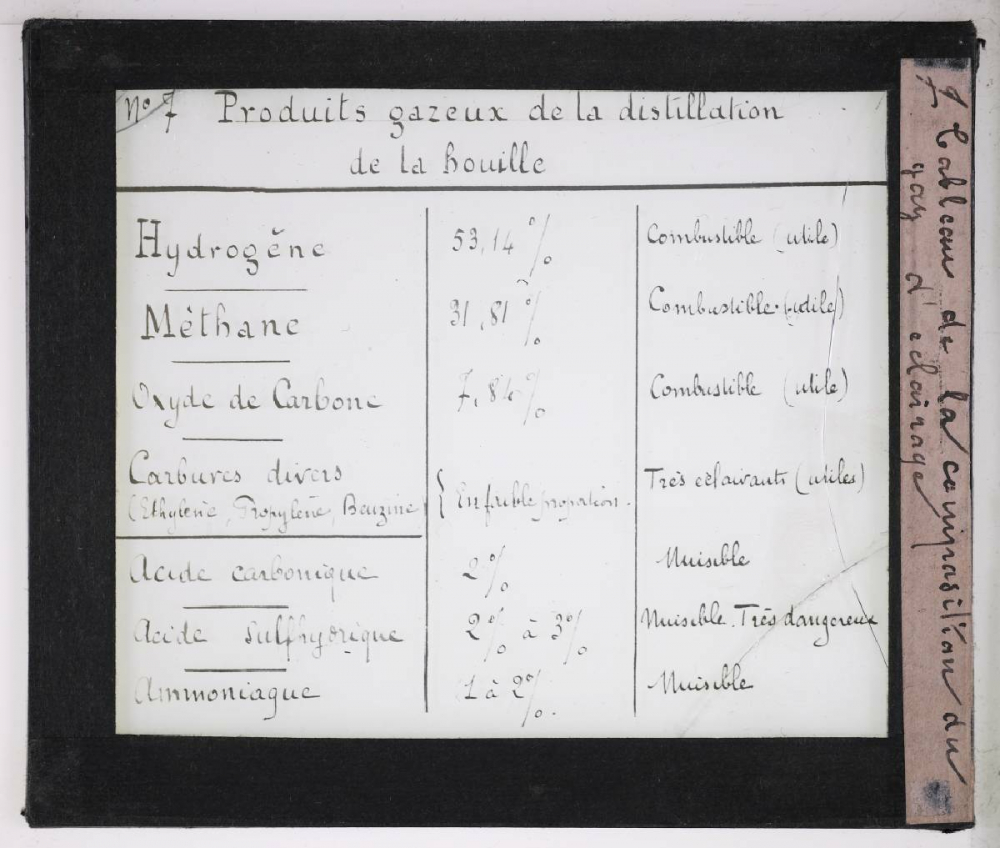 No 7 Produits gazeux de la distillation
de la houille
Hydrogène 53,14 % Combustible (utile)
Méthane 31,81 % Combustible (utile)
Oxyde de Carbone 7,84 % Combustible (utile)
Carbures divers Très eclairants (utiles)
(Ethylène, Propylène, Benzine) { En faible proportion.
Acide carbonique 2 % Nuisible
Acide sulfhydrique 2 % à 3 % Nuisible. Très dangereux
Ammoniaque 1 à 2 %. Nuisible
7 Tableau de la composition du
gaz d'eclairage